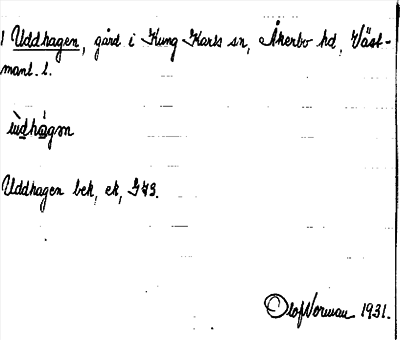 1 Uddhagen, gård i Kung Karls sn, Åkerbo hd, Väst-
manl. l.
ùdhágən
Uddhagen bek, ek, G43.
Olof Norman 1931.